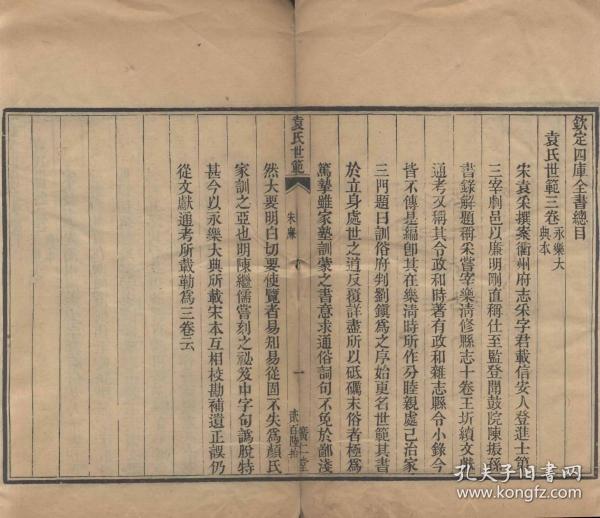 欽定四庫全書總目
袁氏世範三卷永樂大典本
宋袁采撰案衢州府志采字君載信安人登進士第
三宰劇邑以廉明剛直稱仕至監登聞鼓院陳振孫
書錄解題稱采嘗宰樂清修縣志十卷王圻續文獻
通考又稱其令政和時著有政和雜志縣令小錄今
皆不傳是編卽其在樂清時所作分睦親處己治家
三門題曰訓俗府判劉鎮爲之序始更名世範其書
於立身處世之道反覆詳盡所以砥礪末俗者極爲
篤摯雖家塾訓蒙之書意求通俗詞句不免於鄙淺
袁氏世範
朱廉
一
然大要明白切要使覽者易知易從固不失爲顏氏
家訓之亞也明陳繼儒嘗刻之祕笈中字句譌脫特
甚今以永樂大典所載宋本互相校勘補遺正誤仍
從文獻通考所載勒爲三卷云
孔夫子旧书网
www.kongfz.com